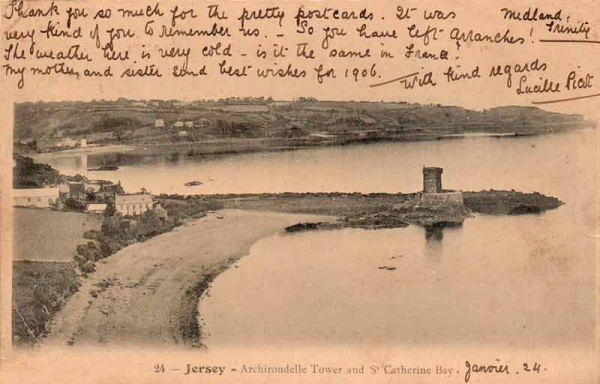 Thank you so much for the pretty postcards. It was
very kind of you to remember us. - So you have left Avranches!
The weather here is very cold - is it the same in France?
My mother and sister send best wishes for 1906.
Midland.
Trinity
With kind regards
Lucille Picot
24 - Jersey - Archirondelle Tower and St Catherine Bay. Janvier. 24.